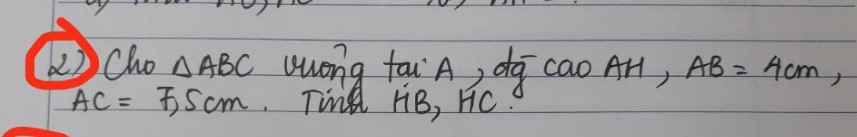 2) Cho △ABC vuông tại A, đg cao AH, AB = 4cm,
AC = 7,5cm. Tính HB, HC.